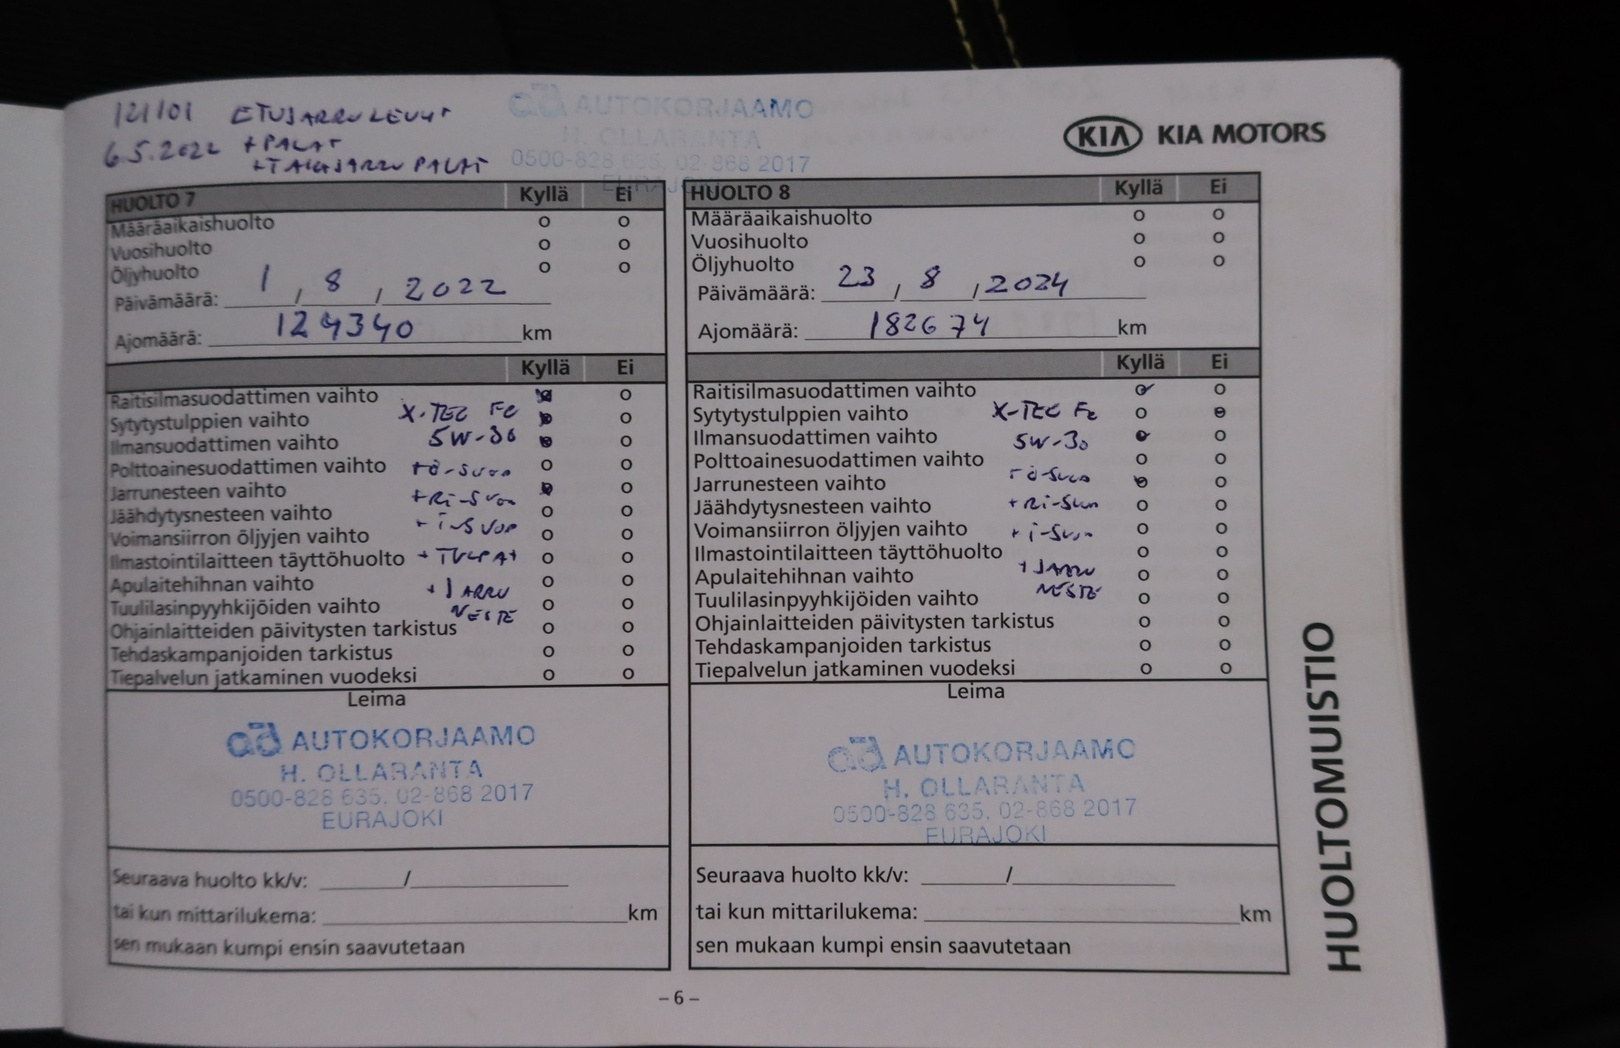 121101 ETUJARRULEVYT
6.5.2022 + PALAT
+ TAKAJARRU PALAT
ad AUTOKORJAAMO
H. OLLARANTA
0500-828 635, 02-868 2017
EURAJOKI
KIA KIA MOTORS
HUOLTO 7 Kyllä Ei
Määräaikaishuolto o o
Vuosihuolto o o
Öljyhuolto o o
Päivämäärä: 1 / 8 / 2022
Ajomäärä: 124340 km
Kyllä Ei
Raitisilmasuodattimen vaihto o
Sytytystulppien vaihto X-TEC FE o
Ilmansuodattimen vaihto 5W-30 o
Polttoainesuodattimen vaihto +ö-suod o o
Jarrunesteen vaihto +Ri-suod o
Jäähdytysnesteen vaihto + i-suod o o
Voimansiirron öljyjen vaihto o o
Ilmastointilaitteen täyttöhuolto + TULPAT o o
Apulaitehihnan vaihto + JARRU o o
Tuulilasinpyyhkijöiden vaihto NESTE o o
Ohjainlaitteiden päivitysten tarkistus o o
Tehdaskampanjoiden tarkistus o o
Tiepalvelun jatkaminen vuodeksi o o
Leima
ad AUTOKORJAAMO
H. OLLARANTA
0500-828 635, 02-868 2017
EURAJOKI
Seuraava huolto kk/v: /
tai kun mittarilukema: km
sen mukaan kumpi ensin saavutetaan
HUOLTO 8 Kyllä Ei
Määräaikaishuolto o o
Vuosihuolto o o
Öljyhuolto o o
Päivämäärä: 23 / 8 / 2024
Ajomäärä: 182674 km
Kyllä Ei
Raitisilmasuodattimen vaihto o
Sytytystulppien vaihto X-TEC FE o
Ilmansuodattimen vaihto 5W-30 o
Polttoainesuodattimen vaihto o o
Jarrunesteen vaihto +ö-suod o
Jäähdytysnesteen vaihto +Ri-suod o o
Voimansiirron öljyjen vaihto + i-suod o o
Ilmastointilaitteen täyttöhuolto o o
Apulaitehihnan vaihto + JARRU o o
Tuulilasinpyyhkijöiden vaihto NESTE o o
Ohjainlaitteiden päivitysten tarkistus o o
Tehdaskampanjoiden tarkistus o o
Tiepalvelun jatkaminen vuodeksi o o
Leima
ad AUTOKORJAAMO
H. OLLARANTA
0500-828 635, 02-868 2017
EURAJOKI
Seuraava huolto kk/v: /
tai kun mittarilukema: km
sen mukaan kumpi ensin saavutetaan
HUOLTOMUISTIO
– 6 –